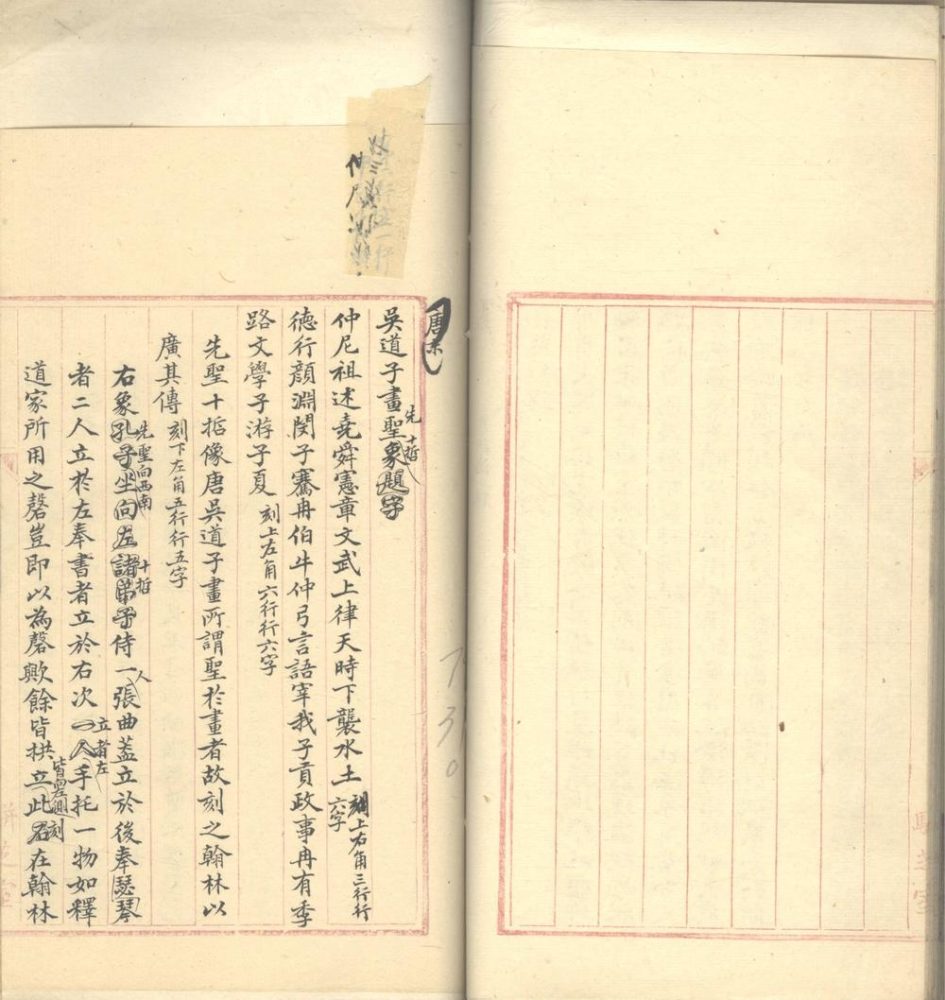 仲尼
唐末
吳道子畫聖先十哲象題字
仲尼祖述堯舜憲章文武上律天時下襲水土刻上右角三行行六字
德行顏淵閔子騫冉伯牛仲弓言語宰我子貢政事冉有季
路文學子游子夏刻上左角六行行六字
先聖十哲像唐吳道子畫所謂聖於畫者故刻之翰林以
廣其傳刻下左角五行行五字
右象孔子坐向左先聖向西南諸弟子十哲侍一人張曲蓋立於後奉瑟琴
者二人立於左奉書者立於右次一人立者左手托一物如釋
道家所用之磬豈即以為磬歟餘皆拱立此刻在翰林
730